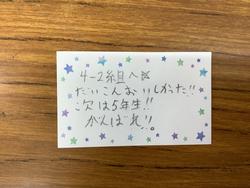 4-2組へ
だいこんおいしかった!!
次は5年生!!
がんばれ!!